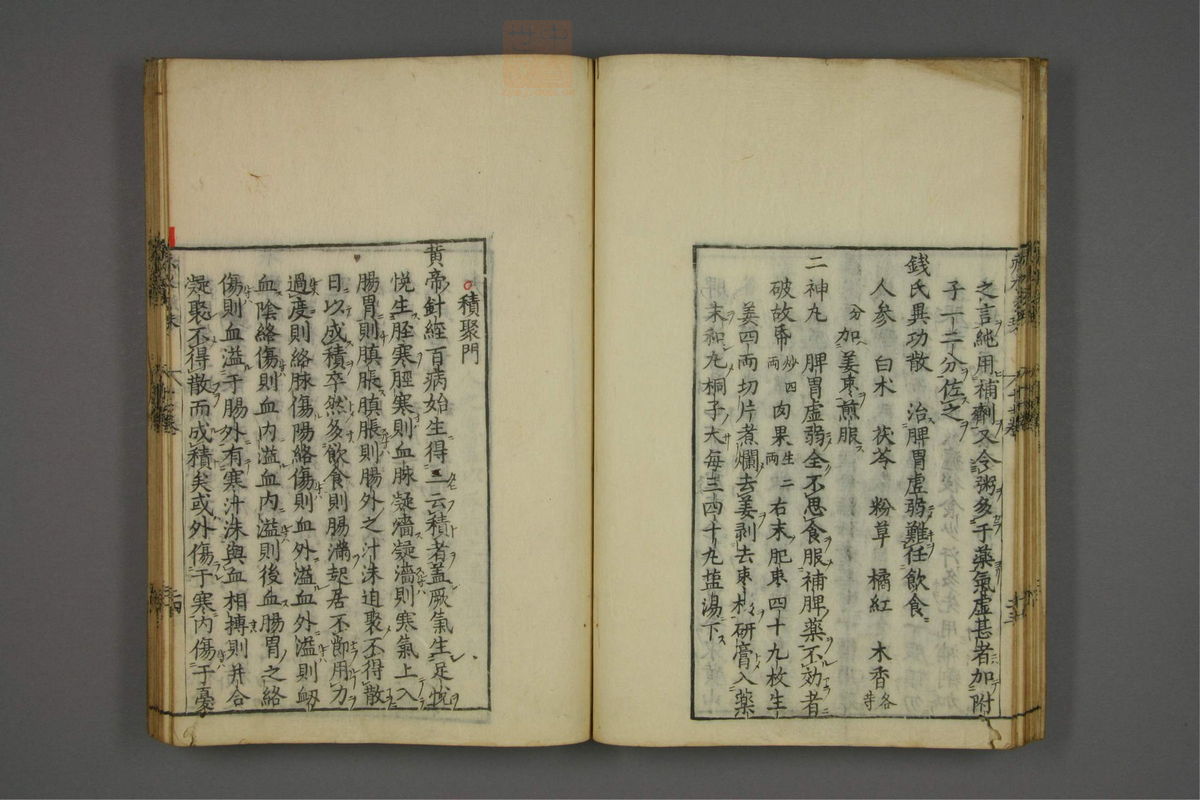 之言純用補劑又令粥多于藥氣虛甚者加附
子一二分佐之
錢氏異功散 治脾胃虛弱難任飲食
人參 白朮 茯苓 粉草 橘紅 木香各等
分加姜棗煎服
二神丸 脾胃虛弱全不思食服補脾藥不効者
破故帋炒四両 肉果生二両 右末肥棗四十九枚生
姜四両切片煮爛去姜剥去棗核研膏入藥
末和丸桐子大每三四十丸塩湯下
積聚門
黄帝針經百病始生得三云積者蓋厥氣生足悗
悗生脛寒脛寒則血脉凝濇凝濇則寒氣上入
腸胃則䐜脹䐜脹則腸外之汁沫迫聚不得散
日以成積卒然多飲食則腸滿起居不節用力
過度則絡脉傷陽絡傷則血外溢血外溢則衂
血陰絡傷則血内溢血内溢則後血腸胃之絡
傷則血溢于腸外有寒汁沫與血相搏則并合
凝聚不得散而成積矣或外傷于寒内傷于憂